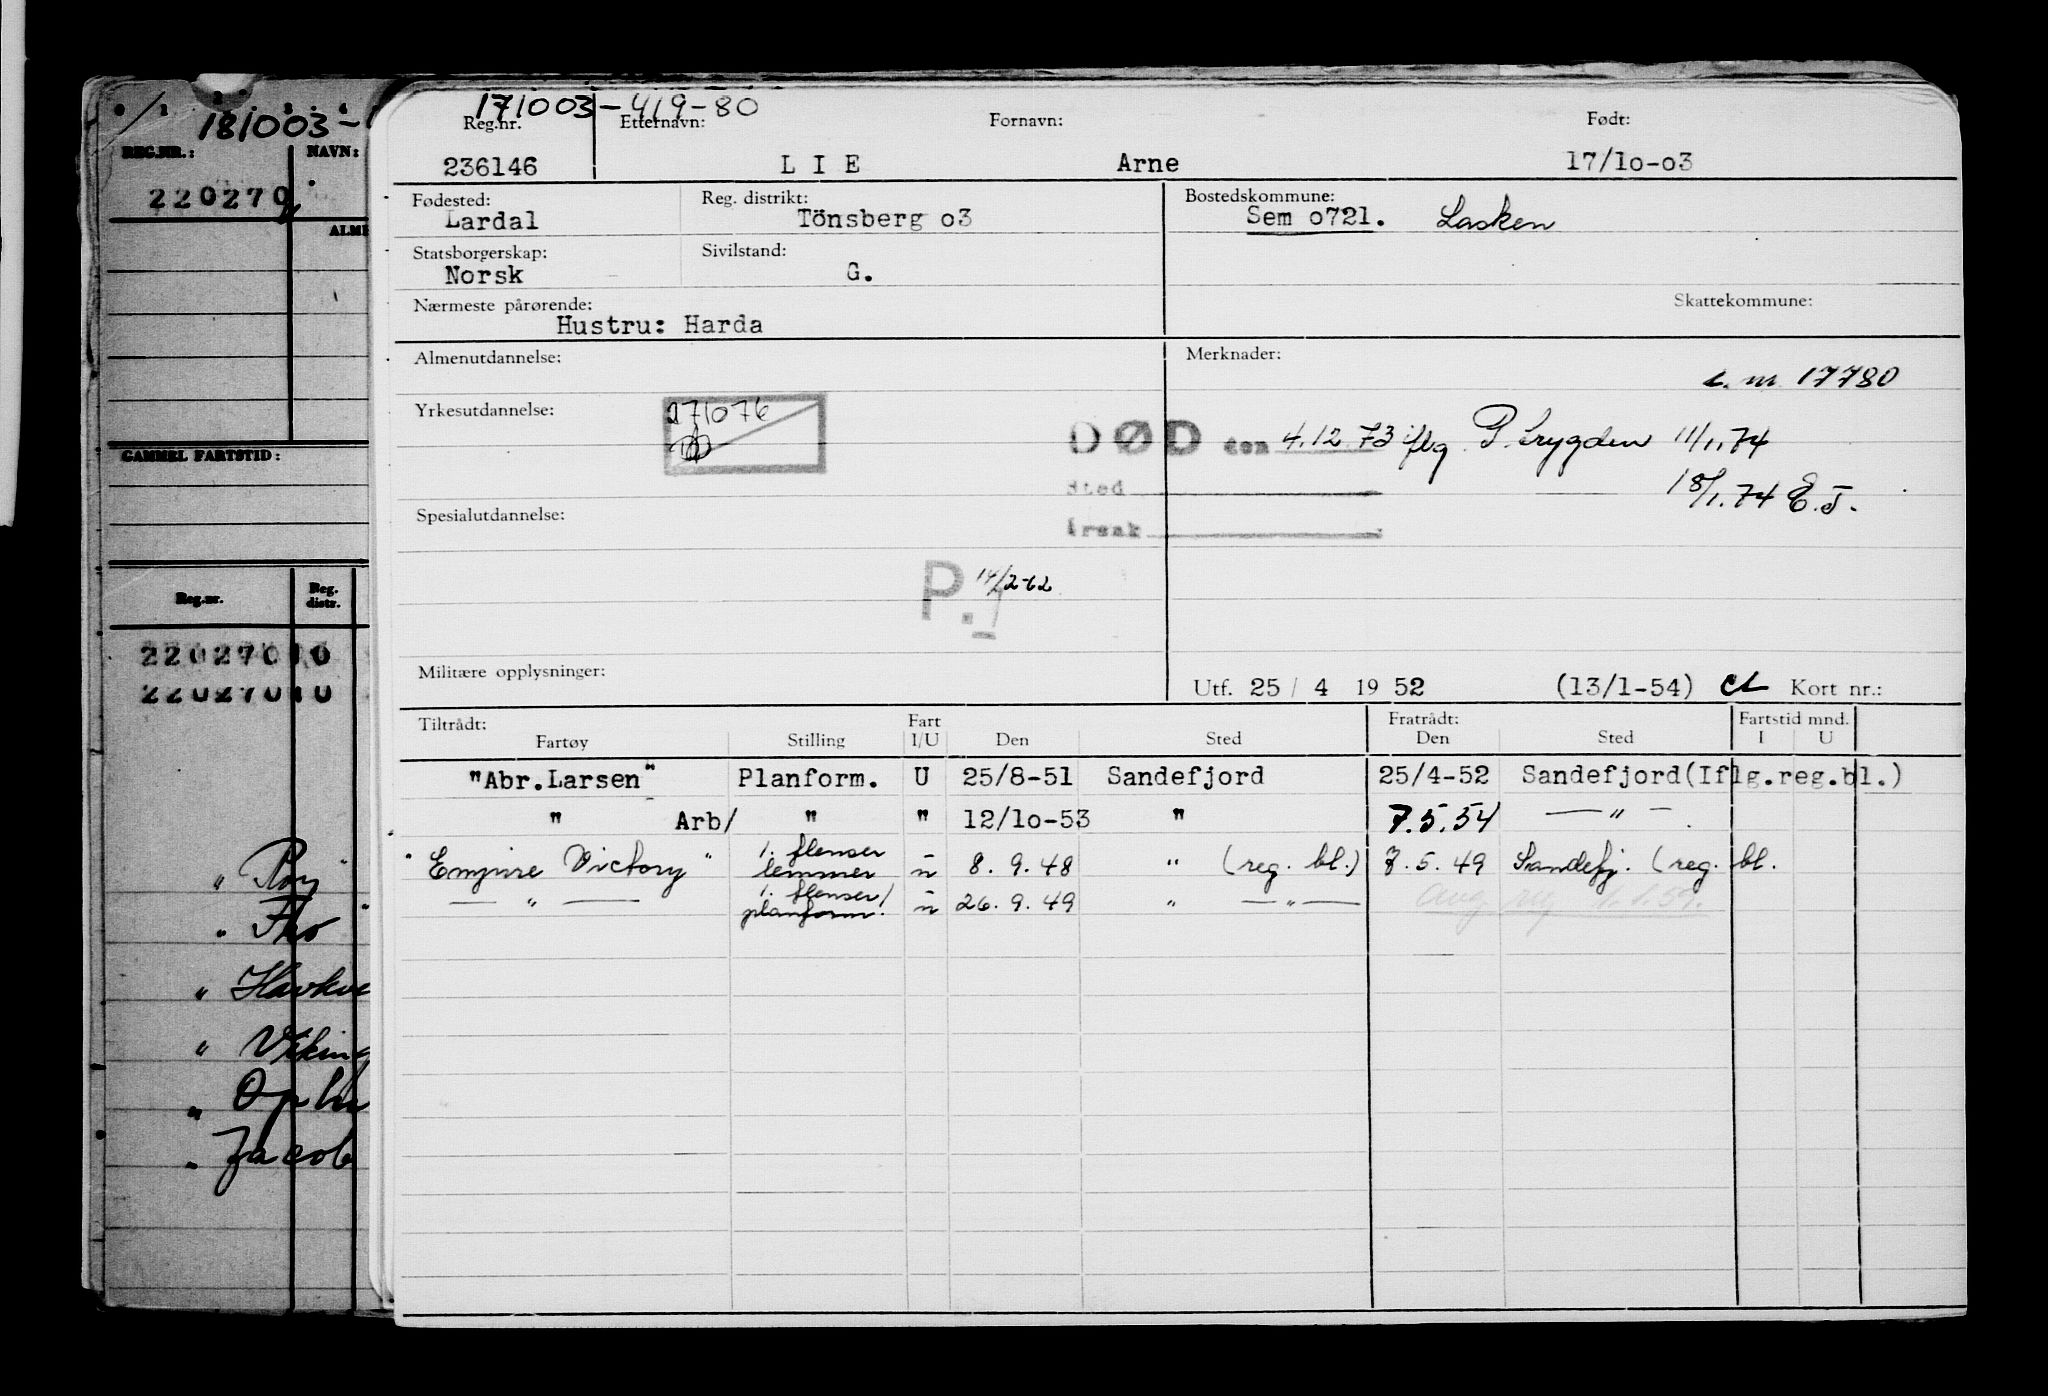 171003-419-80
Reg.nr. Etternavn: Fornavn: Født:
236146 L I E Arne 17/1o-o3
Fødested: Reg. distrikt: Bostedskommune:
Lardal Tönsberg o3 Sem o721. Lasken
Statsborgerskap: Sivilstand:
Norsk G.
Nærmeste pårørende: Skattekommune:
Hustru: Harda
Almenutdannelse: Merknader:
c. m 17780
Yrkesutdannelse: 271076
DØD den 4.12.73 iflg P. trygden 11/1.74
Sted 18/1.74 E.J.
Spesialutdannelse: årsak
P. 14/2-62
Militære opplysninger:
Utf. 25 / 4 19 52 (13/1-54) Kort nr.:
Tiltrådt: Fart Fratrådt: Fartstid mnd.
Fartøy Stilling I/U Den Sted Den Sted I U
"Abr.Larsen" Planform. U 25/8-51 Sandefjord 25/4-52 Sandefjord(Iflg.reg.bl.)
" Arb/ " " 12/1o-53 " 7.5.54 — " —
"Empire Victory" 1. flenser lemmer u 8.9.48 " (reg. bl.) 7.5.49 Sandefj. (reg. bl.
— " — 1. flenser/ planform. u 26.9.49 " — " —
181003-
REG.NR.: NAVN:
220270
ALME
GAMMEL FARTSTID:
Reg.nr. Reg. distr.
22027010
22027010
" Roy "
" Tho "
" Havkve
" Viking
"
" Jacob